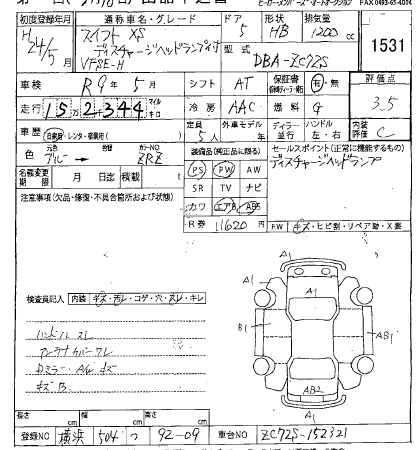 FAX 0493-65-4004
初度登録年月 通称車名・グレード ドア 形状 排気量
H 24/5 スイフト XS 5 HB 1200cc
ディスチャージヘッドランプ付
VFSE-H 型式 DBA-ZC72S 1531
車検 R9年5月 シフト AT 保証書 有・無 評価点
走行 15万2344 マイル キロ 冷房 AAC 燃料 G 3.5
車歴 自家用・レンタ・ 定員 5人 外車モデル 年 ディーラー 並行 ハンドル 左・右 内装評価 C
色 ブルー 元色 カラーNO ZRZ 装備品(純正品に限る) セールスポイント(正常に機能するもの)
ディスチャージヘッドランプ
名義変更期限 月 日迄 積載 t PS PW AW
注意事項(欠品・修復・不具合箇所および状態) SR TV ナビ
カワ エアB ABS
R券 11620円 FW キズ・ヒビ割・リペア跡・X要
A1
A1 A1
検査員記入 内装 キズ・汚レ・コゲ・穴・スレ・キレ
ハンドルスレ B1 AB1
アンテナカバーワレ
Dミラー・A/W キズ
キズB AB2
A1
長さ cm 幅 cm 高さ cm
登録NO 横浜 504 つ 92-09 車台NO ZC72S-152321